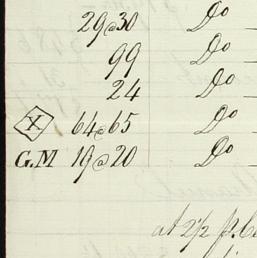 29@30 Do
99 Do
24 Do
X 64@65 Do
G.M 19@20 Do
at 2½ p.C